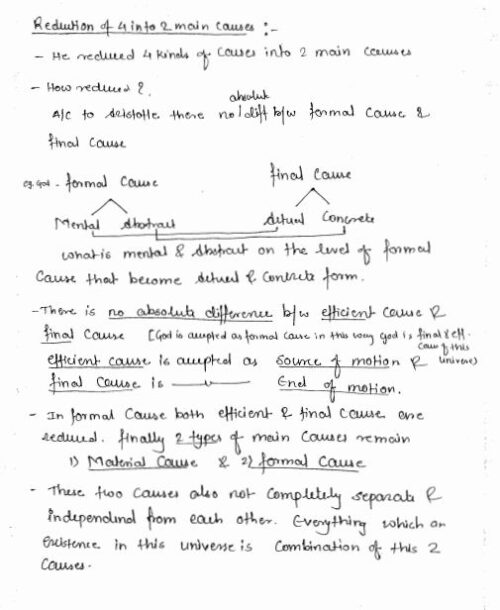 Reduction of 4 into 2 main causes :-
- He reduced 4 kinds of causes into 2 main causes
- How reduced ?
absolute
A/c to Aristotle there no / diff b/w formal cause &
final cause
final cause
eg. God - formal cause
Mental Abstract Actual Concrete
what is mental & Abstract on the level of formal
cause that become Actual & Concrete form.
- There is no absolute difference b/w efficient cause &
final cause [God is accepted as formal cause in this way god is final & eff.
cause of this
universe]
efficient cause is accepted as source of motion &
final cause is End of motion.
- In formal cause both efficient & final cause are
reduced. finally 2 types of main causes remain
1) Material cause & 2) formal cause
- These two causes also not completely separate &
independend from each other. Everything which on
existence in this universe is combination of this 2
causes.